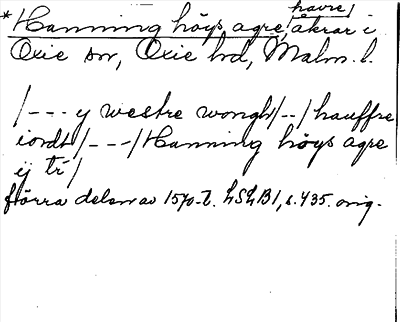 * Hanning höys agre, havre/åkrar i
Oxie sn, Oxie hd, Malm. l.
/--- y westre wongh/--/hauffre
iordt/---/Hanning höys agre
ij tr/
förra delen av 1570-t. LSLB1, s. 435. orig.